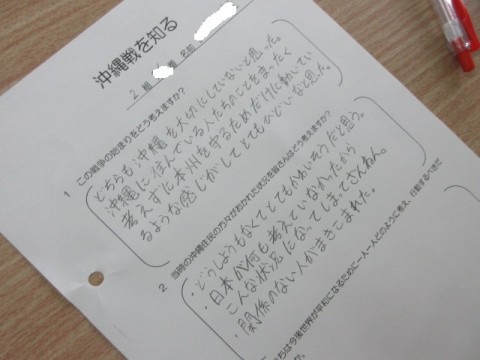 沖縄戦を知る
2 組 番 名前
1 この戦争の始まりをどう考えますか?
どちらも沖縄を大切にしていないと思った。
沖縄に住んでいる人たちのことをまったく
考えずに本州を守るためだけに動いてい
るような感じがしてとてもひどいなと思った。
2 当時の沖縄住民の方々がおかれた状況を皆さんはどう考えますか?
・どうしようもなくてとてもかわいそうだと思う。
・日本が何も考えていなかったから
こんな状況になってしまってざんねん。
・関係のない人がまきこまれた。
ちは今後世界が平和になるために一人一人どのように考え、行動するべきだ